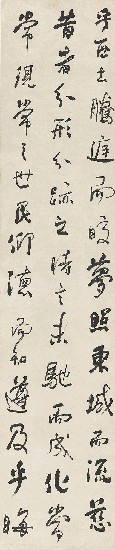 乎西土騰庭而皎夢照東域而流慈
昔者分形分跡之時言未馳而成化當
常現常之世民仰德而知遵及乎晦